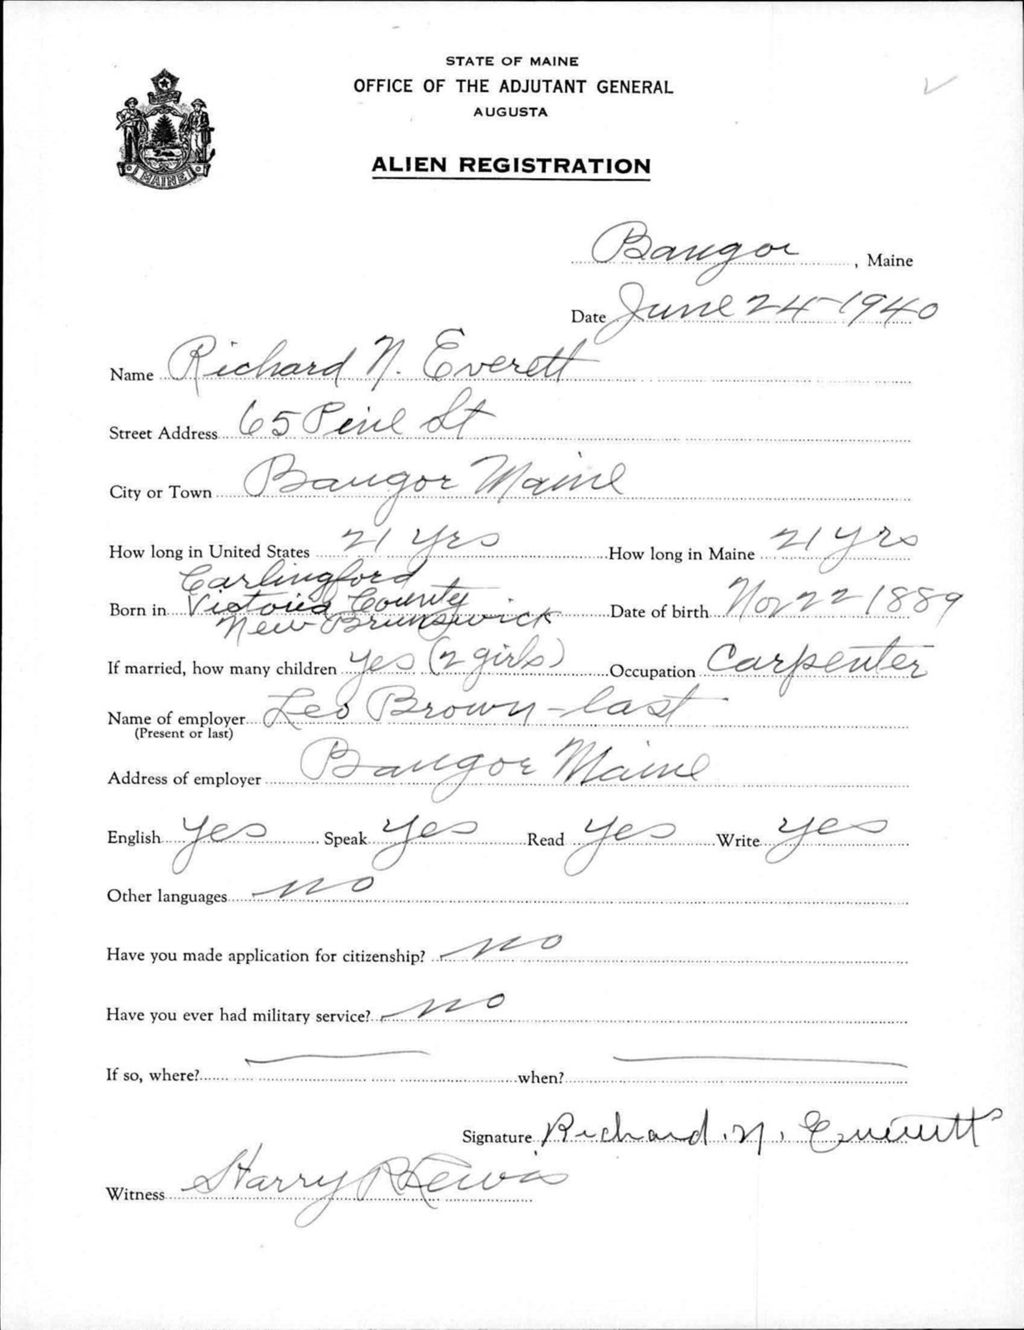 STATE OF MAINE
OFFICE OF THE ADJUTANT GENERAL
AUGUSTA
ALIEN REGISTRATION
MAINE
Bangor, Maine
Date June 24-1940
Name Richard N. Everett
Street Address 65 Pine St
City or Town Bangor Maine
How long in United States 21 yrs How long in Maine 21 yrs
Carlingford
Born in Victoria County Date of birth Nov 22 1889
New Brunswick
If married, how many children yes (2 girls) Occupation Carpenter
Name of employer Leo Brown - last
(Present or last)
Address of employer Bangor Maine
English yes Speak yes Read yes Write yes
Other languages no
Have you made application for citizenship? no
Have you ever had military service? no
If so, where? when?
Signature Richard . N . Everett
Witness Harry R Lewis